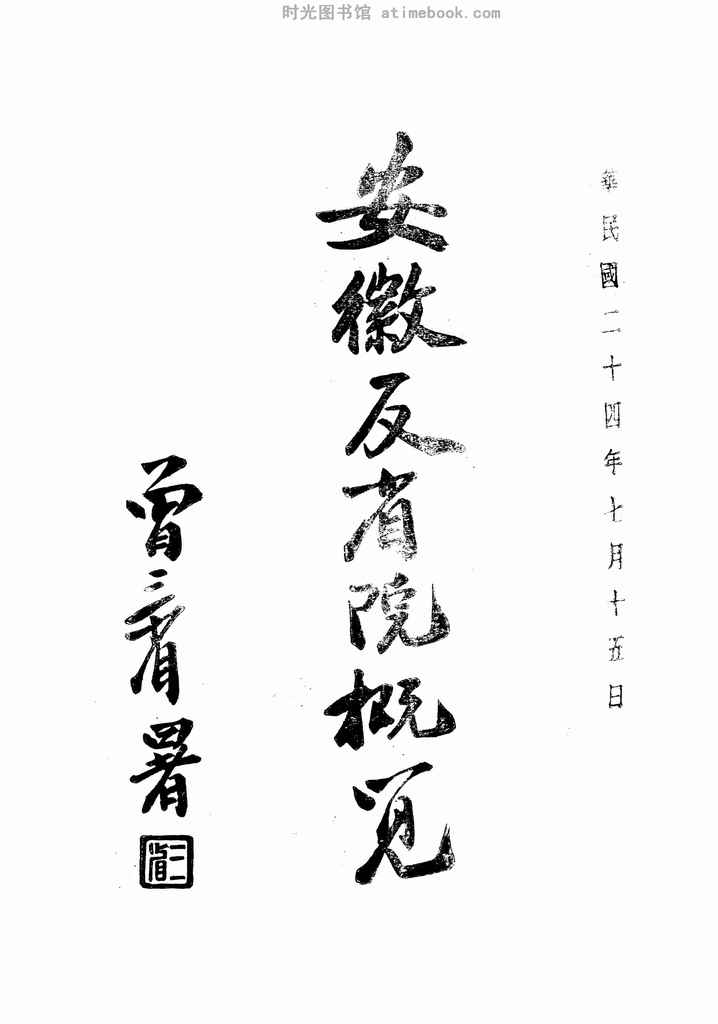 时光图书馆 atimebook.com
華民國二十四年七月十五日
安徽反省院概览
曾三省署
三省